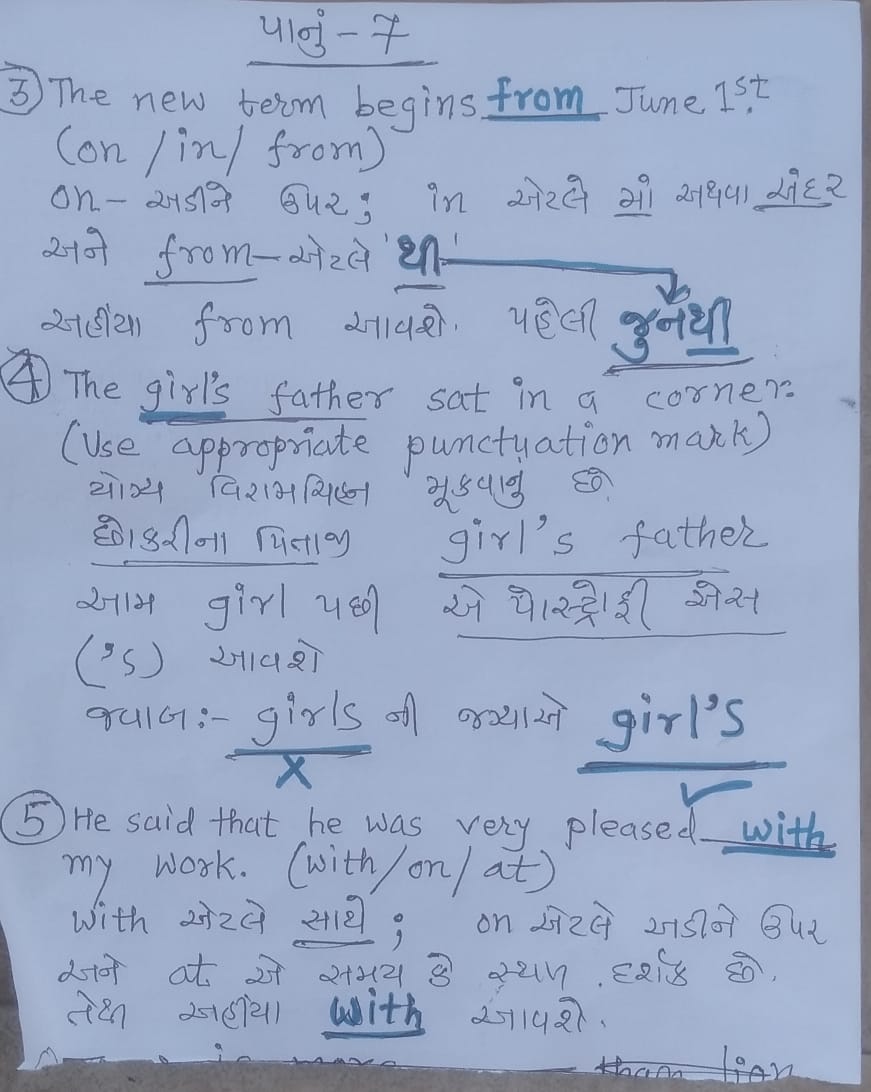 પાનું - 7
③ The new term begins from June 1st.
(on / in / from)
on - અડીને ઉપર; in એટલે માં અથવા અંદર
અને from - એટલે 'થી'
અહીંયા from આવશે. પહેલી જુનથી
④ The girl's father sat in a corner.
(Use appropriate punctuation mark)
યોગ્ય વિરામચિહ્ન મૂકવાનું છે.
છોકરીના પિતાજી girl's father
આમ girl પછી એ પોસ્ટ્રોફી એસ
('s) આવશે
જવાબ:- girls ની જગ્યાએ girl's
X
⑤ He said that he was very pleased with
my work. (with / on / at)
with એટલે સાથે; on એટલે અડીને ઉપર
અને at એ સમય કે સ્થળ દર્શક છે.
તેથી અહીંયા with આવશે.
than lion